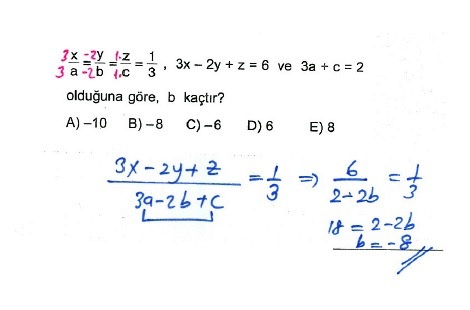 3x/3a = -2y/-2b = 1.z/1.c = 1/3 , 3x – 2y + z = 6 ve 3a + c = 2
olduğuna göre, b kaçtır?
A) –10 B) –8 C) –6 D) 6 E) 8
3x-2y+z / 3a-2b+c = 1/3 ⇒ 6 / 2-2b = 1/3
18 = 2-2b
b = -8